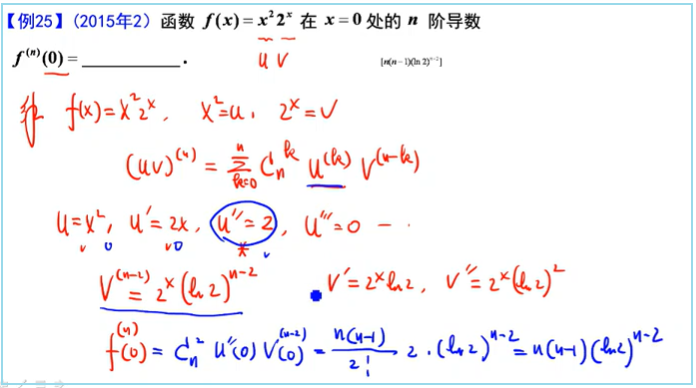 【例25】(2015年2) 函数 f(x) = x²2ˣ 在 x = 0 处的 n 阶导数
f⁽ⁿ⁾(0) = ____________ . [n(n−1)(ln 2)ⁿ⁻²]
u v
解 f(x) = x²2ˣ, x² = u, 2ˣ = v
(uv)⁽ⁿ⁾ = Σₖ₌₀ⁿ Cₙᵏ u⁽ᵏ⁾ v⁽ⁿ⁻ᵏ⁾
u = x², u′ = 2x, u″ = 2, u‴ = 0 ⋯
0 0
v⁽ⁿ⁻²⁾ = 2ˣ(ln 2)ⁿ⁻² v′ = 2ˣ ln 2, v″ = 2ˣ(ln 2)²
f⁽ⁿ⁾(0) = Cₙ² u″(0) v⁽ⁿ⁻²⁾(0) = n(n−1)/2! 2 · (ln 2)ⁿ⁻² = n(n−1)(ln 2)ⁿ⁻²